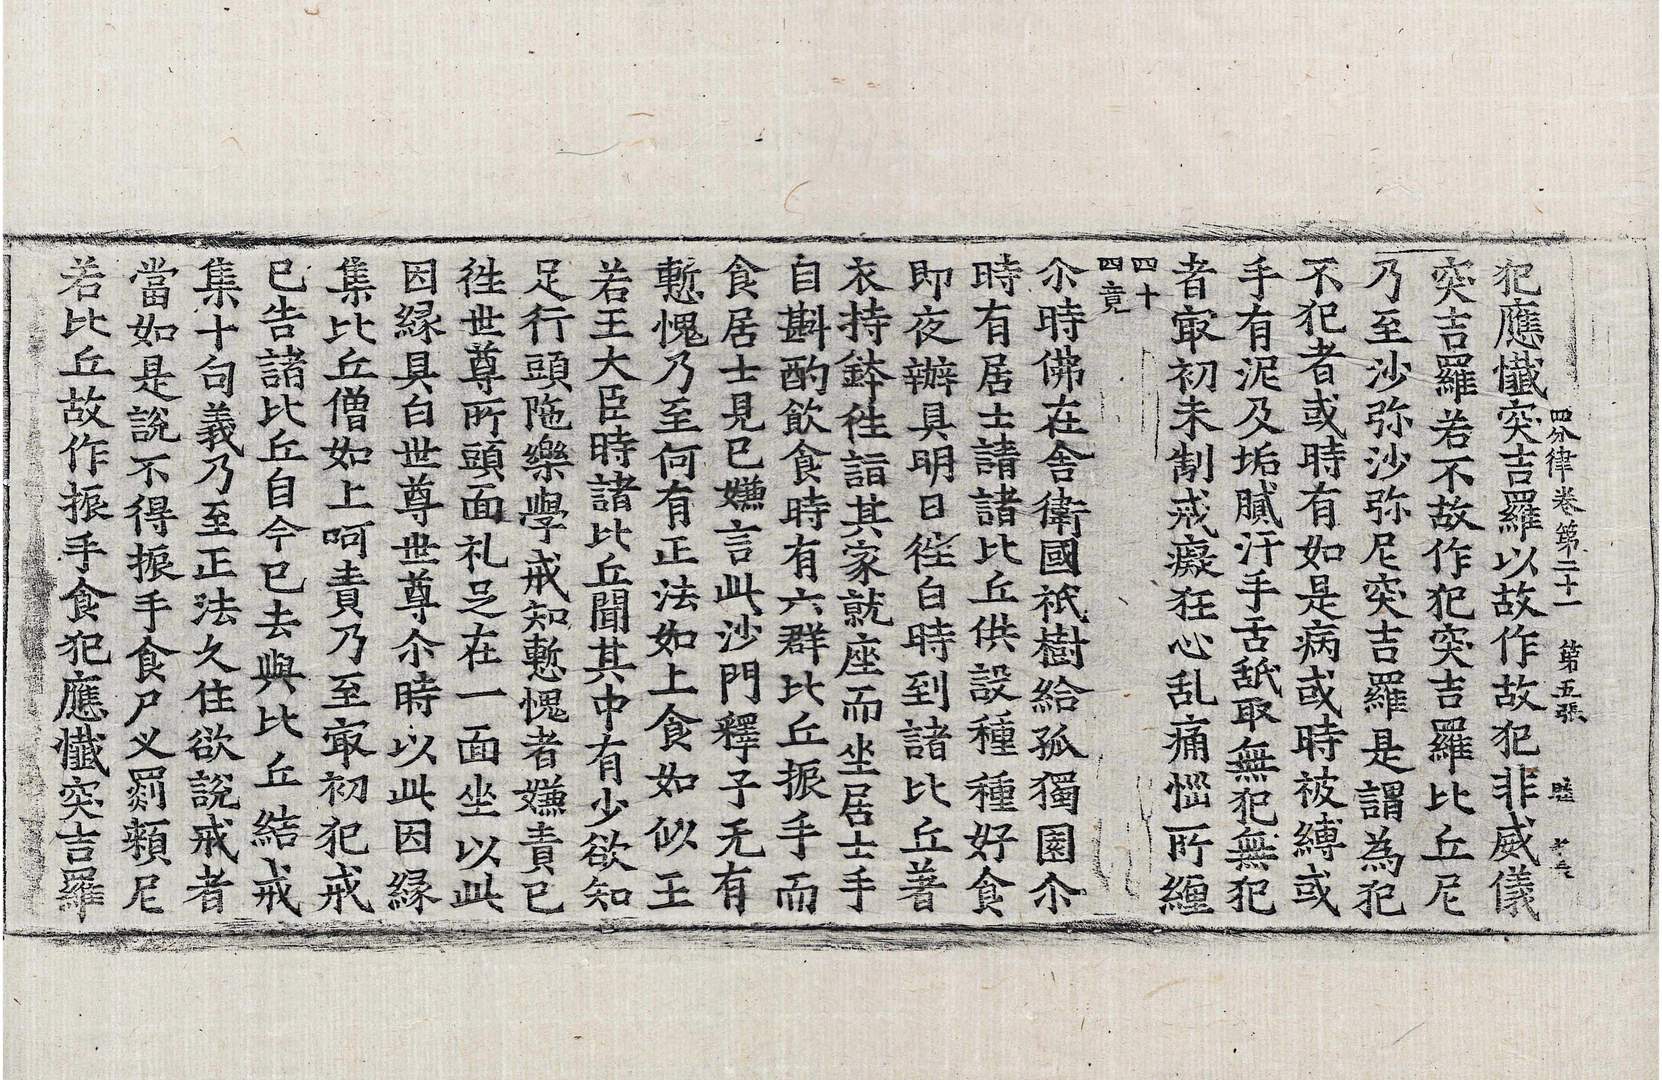 四分律卷第二十一　第五張
犯應懺突吉羅以故作故犯非威儀
突吉羅若不故作犯突吉羅比丘尼
乃至沙弥沙弥尼突吉羅是謂為犯
不犯者或時有如是病或時被縛或
手有泥及垢膩汙手舌舐取無犯無犯
者㝡初未制戒癡狂心乱痛惱所纏
四十
四竟
尒時佛在舍衛國祇樹給孤獨園尒
時有居士請諸比丘供設種種好食
即夜辦具明日徃白時到諸比丘著
衣持鉢徃詣其家就座而坐居士手
自斟酌飲食時有六群比丘振手而
食居士見已嫌言此沙門釋子无有
慙愧乃至何有正法如上食如似王
若王大臣時諸比丘聞其中有少欲知
足行頭陁樂學戒知慙愧者嫌責已
徃世尊所頭面礼足在一面坐以此
因緣具白世尊世尊尒時以此因緣
集比丘僧如上呵責乃至㝡初犯戒
已告諸比丘自今已去與比丘結戒
集十句義乃至正法久住欲說戒者
當如是說不得振手食尸叉罽賴尼
若比丘故作振手食犯應懺突吉羅